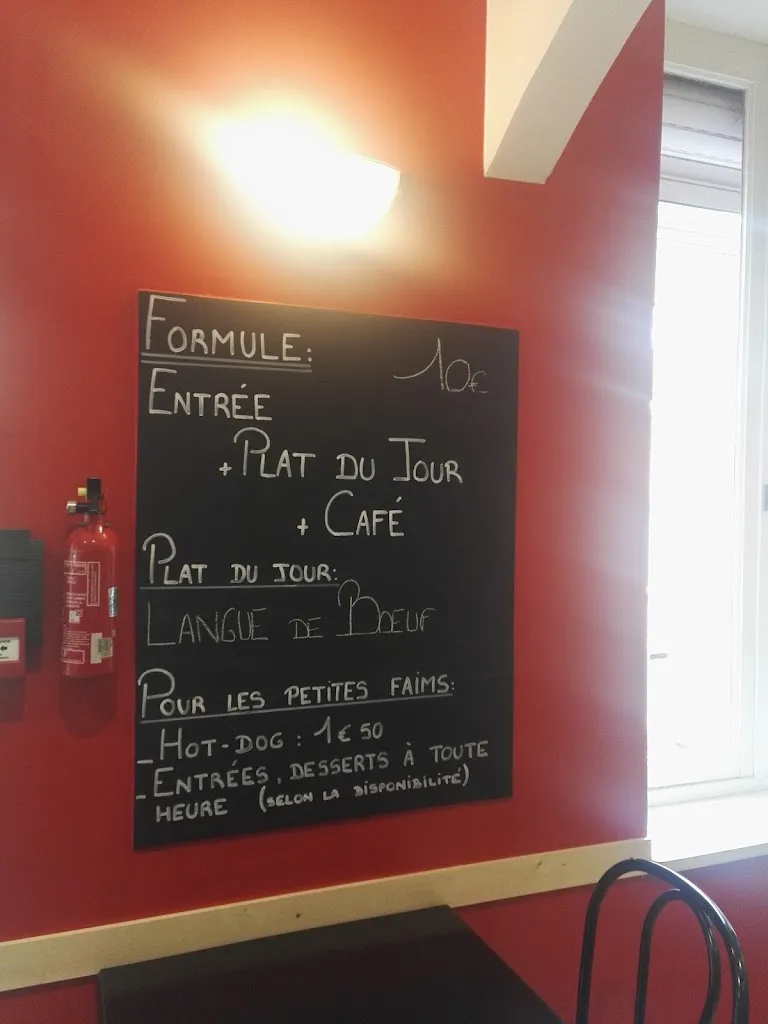 FORMULE: 10€
ENTRÉE
+ PLAT DU JOUR
+ CAFÉ
PLAT DU JOUR:
LANGUE DE BOEUF
POUR LES PETITES FAIMS:
- HOT-DOG : 1€50
- ENTRÉES, DESSERTS À TOUTE
HEURE (SELON LA DISPONIBILITÉ)